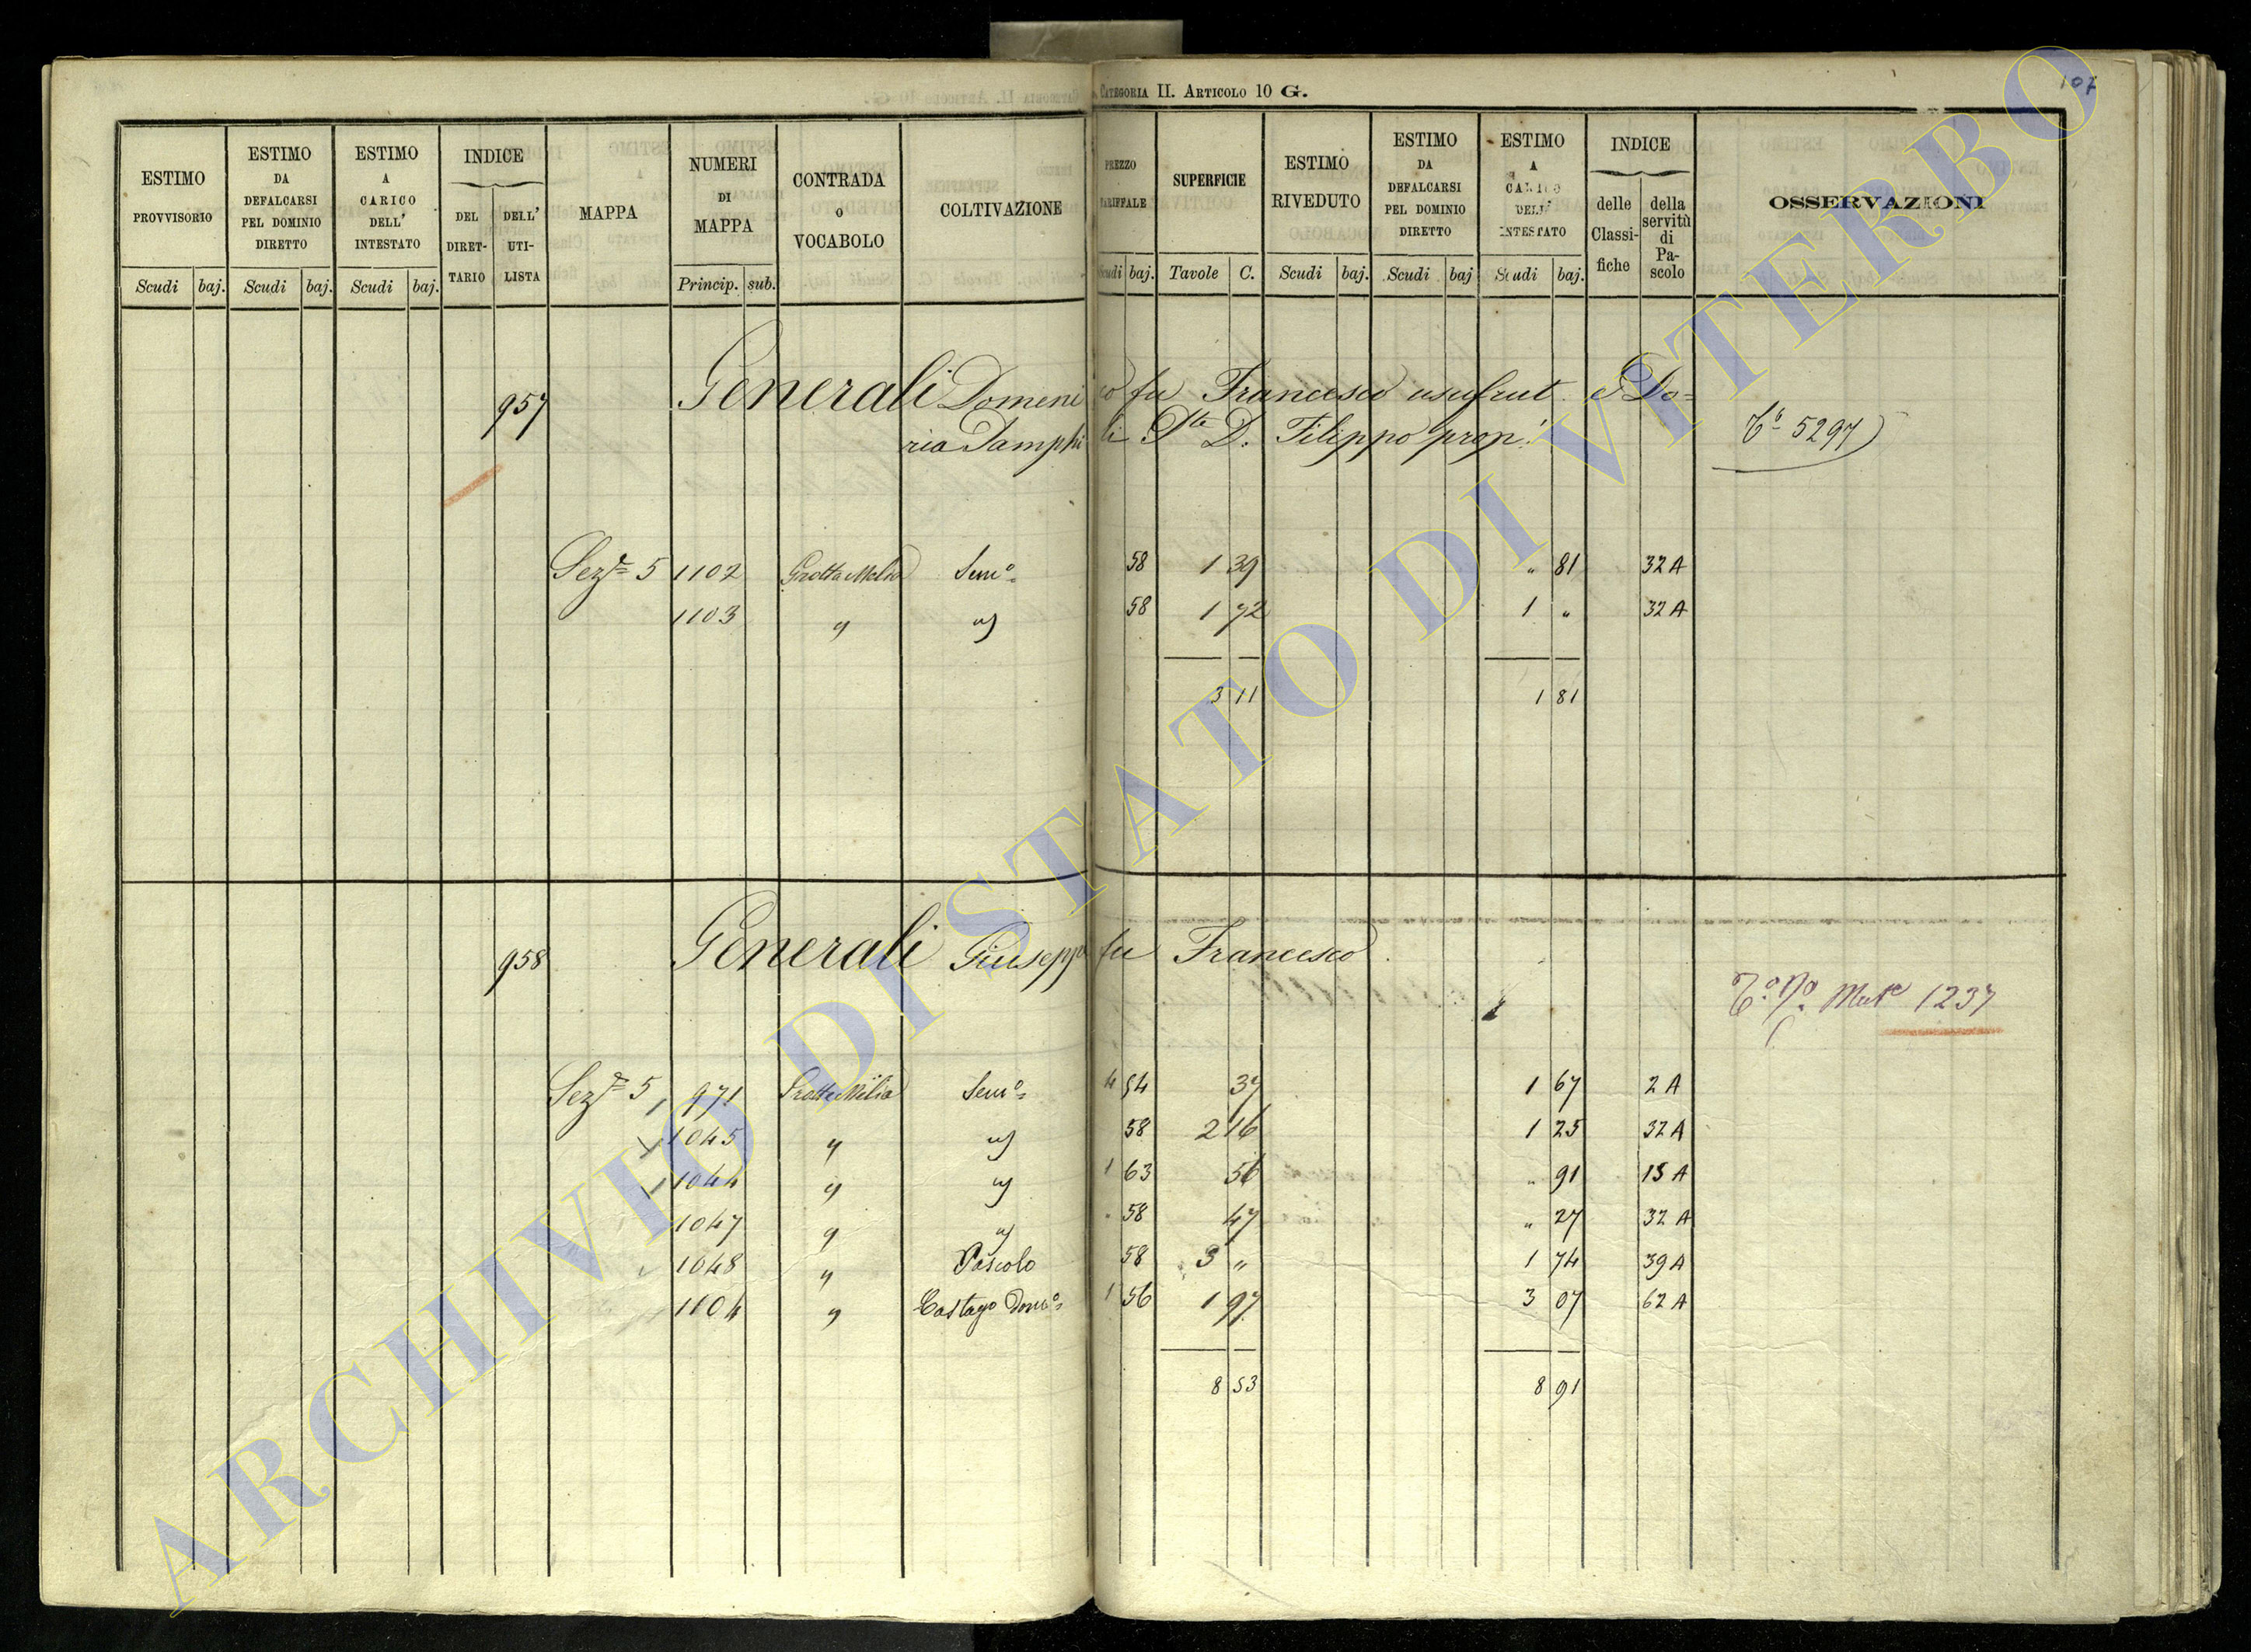 107
CATEGORIA II. ARTICOLO 10 G.
ESTIMO PROVVISORIO
ESTIMO DA DEFALCARSI PEL DOMINIO DIRETTO
ESTIMO A CARICO DELL' INTESTATO
INDICE
DEL DIRETTARIO
DELL' UTILISTA
MAPPA
NUMERI DI MAPPA
CONTRADA O VOCABOLO
COLTIVAZIONE
PREZZO TARIFFALE
SUPERFICIE
ESTIMO RIVEDUTO
ESTIMO DA DEFALCARSI PEL DOMINIO DIRETTO
ESTIMO A CARICO DELL' INTESTATO
INDICE
delle Classifiche
della servitù di Pascolo
OSSERVAZIONI
Scudi baj. Scudi baj. Scudi baj. Princip. sub. Scudi baj. Tavole C. Scudi baj. Scudi baj Scudi baj.
957 Generali Domenico fu Francesco usufrut. e Do=
ria Pamphili Pte D. Filippo prop.
5297
Seze 5 1102 Grotta Melia Semo 58 1 39 " 81 32 A
1103 " " 58 1 72 1 " 32 A
3 11 1 81
958 Generali Giuseppe fu Francesco
1237
Seze 5 971 Grotta Melia Semo 4 54 37 1 67 2 A
1045 " " 58 2 16 1 25 32 A
1044 " " 1 63 56 " 91 15 A
1047 " " " 58 47 " 27 32 A
1048 " Pascolo 58 3 " 1 74 39 A
1104 " Castago Domo 1 56 1 97 3 07 62 A
8 53 8 91
ARCHIVIO DI STATO DI VITERBO